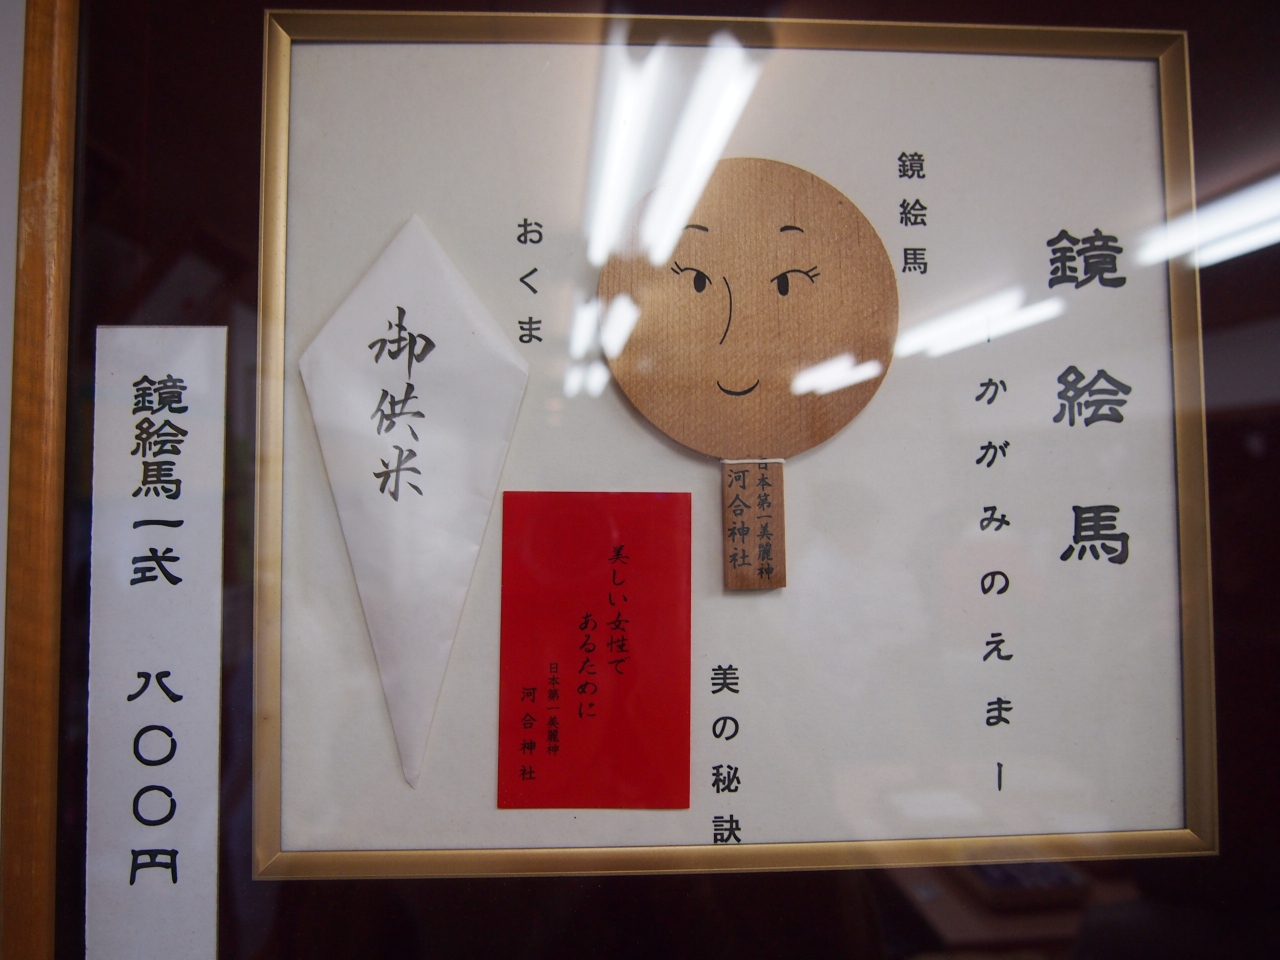 鏡絵馬
ーかがみのえまー
鏡絵馬
日本第一美麗神
河合神社
美の秘訣
美しい女性で
あるために
日本第一美麗神
河合神社
おくま
御供米
鏡絵馬一式 八〇〇円